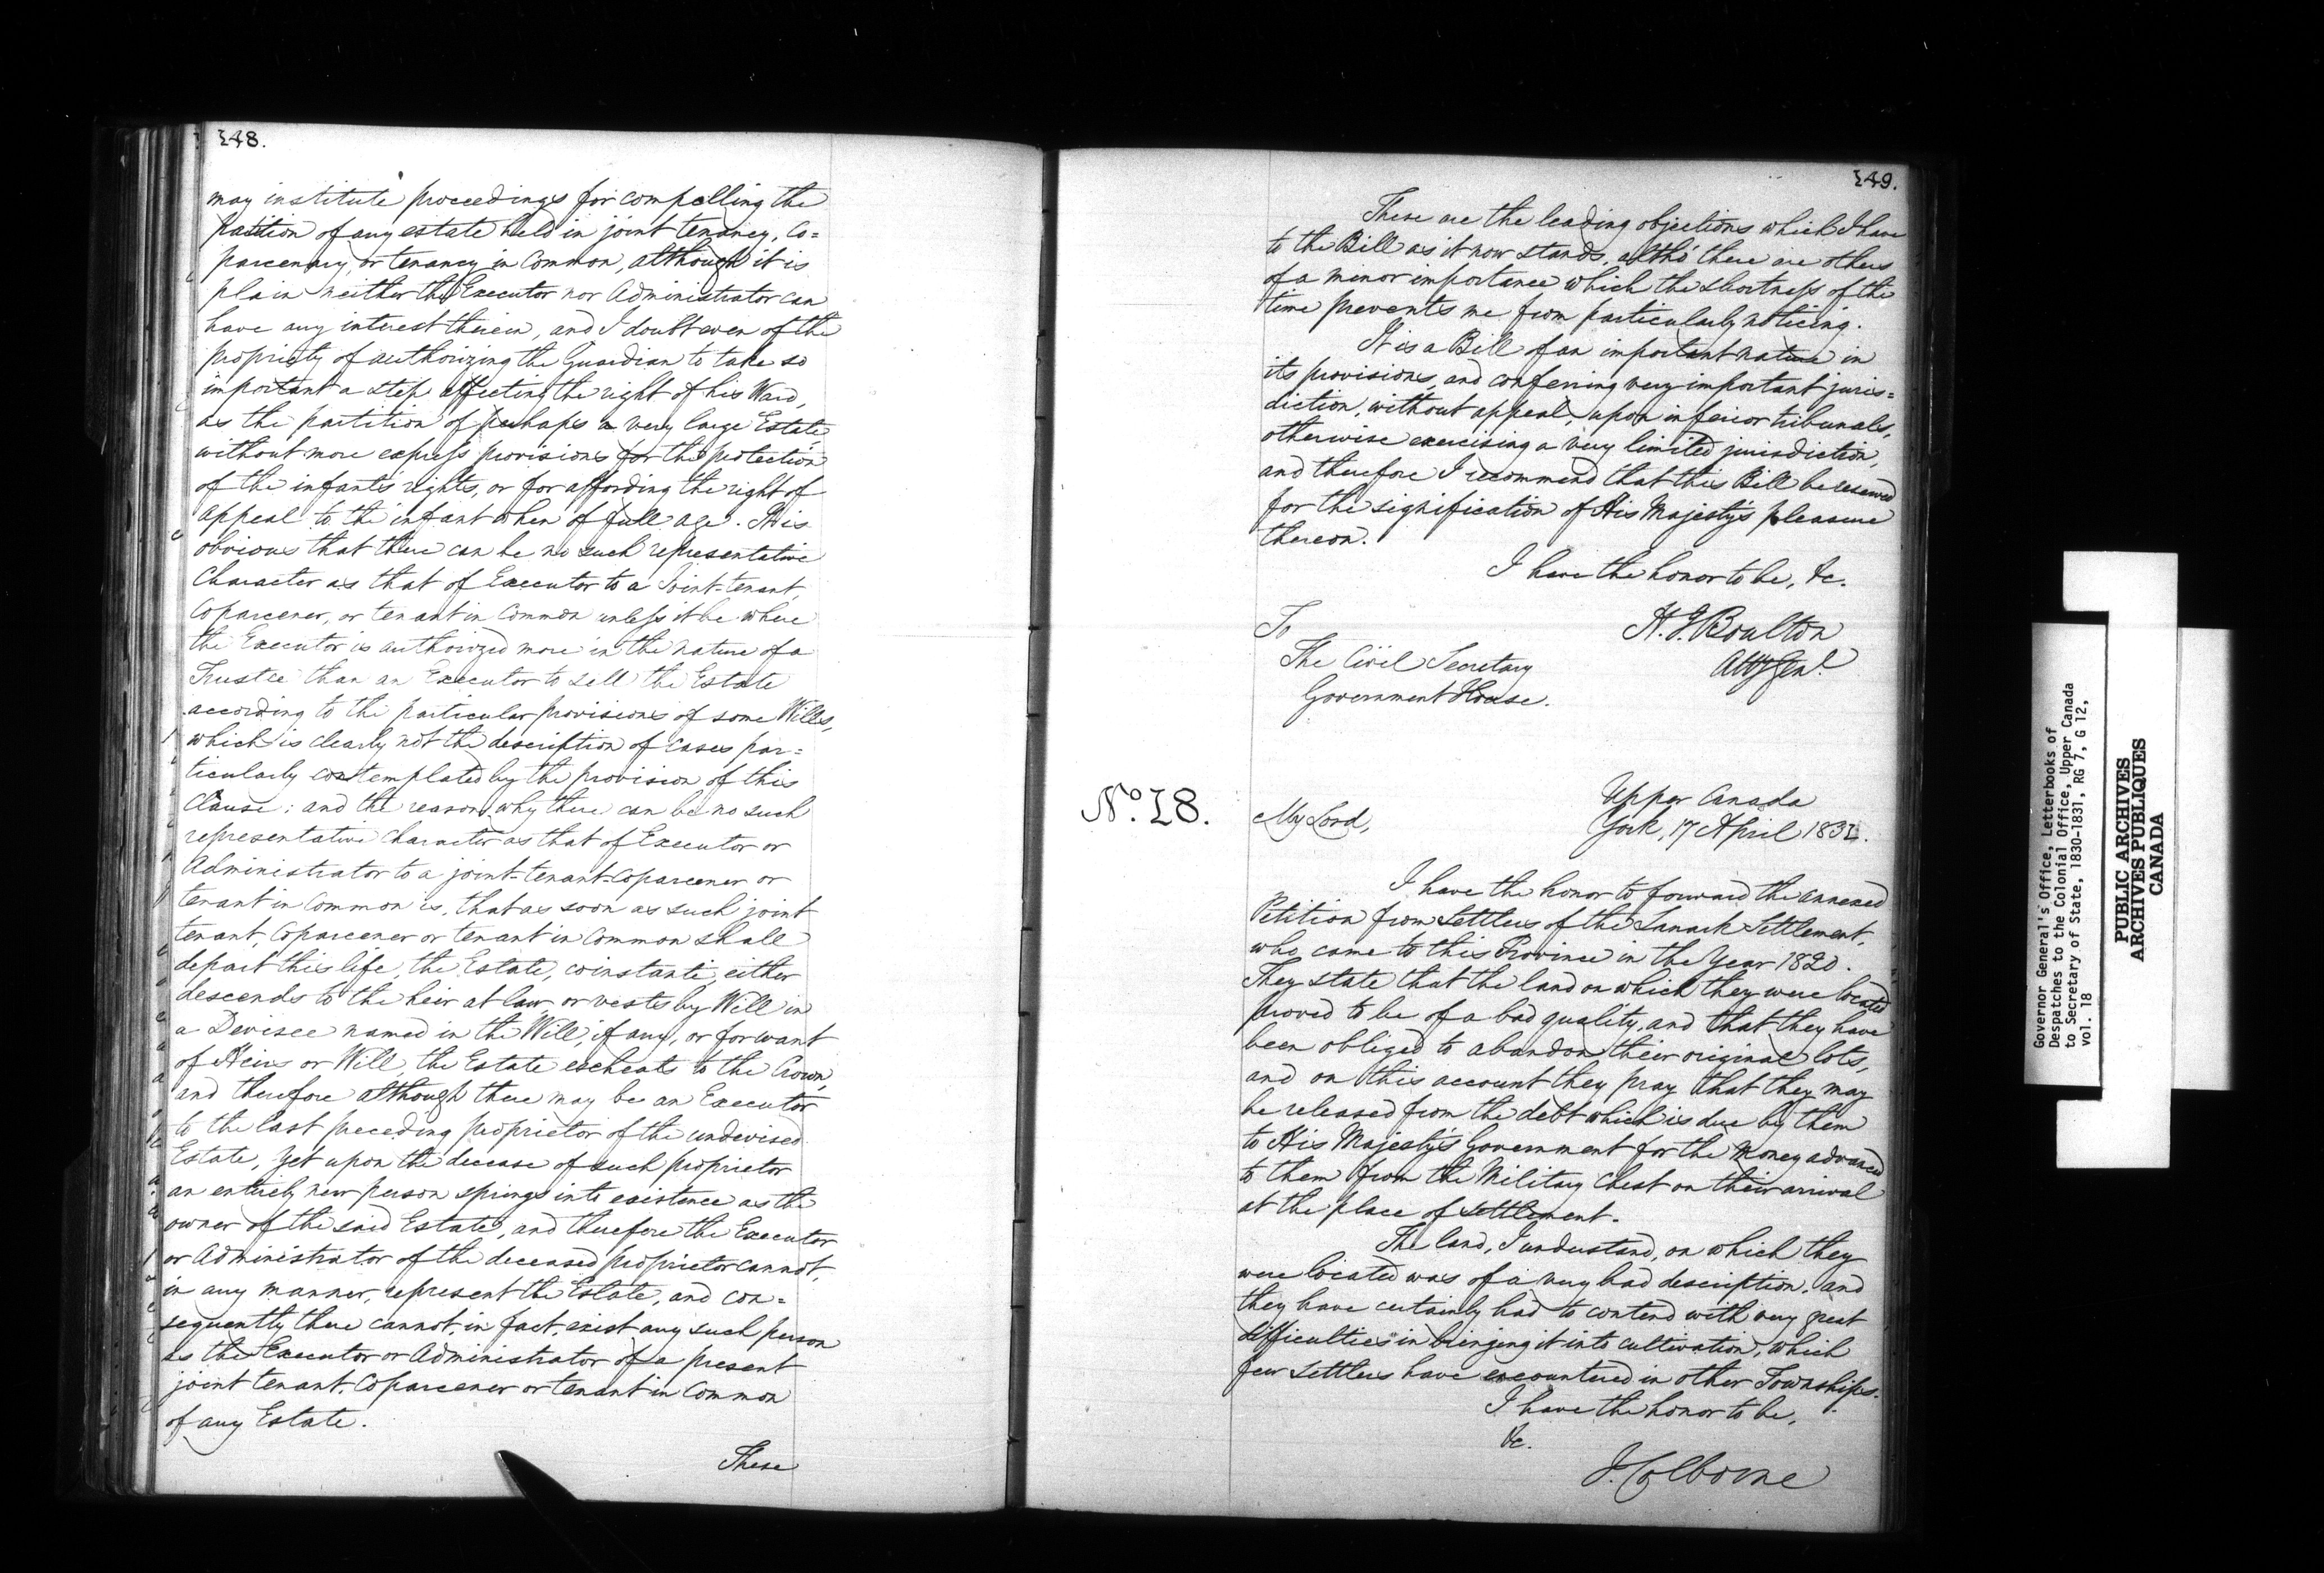 148.
may institute proceedings for compelling the
partition of any estate held in joint tenancy, Co=
parcenary, or tenancy in Common, although it is
plain neither the Executor nor Administrator can
have any interest therein, and I doubt even of the
propriety of authorizing the Guardian to take so
important a step affecting the right of his Ward,
as the partition of perhaps a very large Estate,
without more express provisions for the protection
of the infant's rights, or for affording the right of
appeal to the infant when of full age. It is
obvious that there can be no such representative
Character as that of Executor to a Joint-tenant,
Coparcener, or tenant in Common unless it be where
the Executor is authorized more in the nature of a
Trustee than an Executor to sell the Estate
according to the particular provisions of some Wills,
which is clearly not the description of cases par=
ticularly contemplated by the provision of this
Clause; and the reason why there can be no such
representative character as that of Executor or
Administrator to a joint-tenant-Coparcener or
tenant in Common is, that as soon as such joint
tenant, Coparcener or tenant in Common shall
depart this life, the Estate, coinstanti, either
descends to the heir at law or vests by Will in
a Devisee named in the Will, if any, or for want
of Heirs or Will, the Estate escheats to the Crown,
and therefore although there may be an Executor
to the last preceding proprietor of the undevised
Estate, yet upon the decease of such proprietor
an entirely new person springs into existence as the
owner of the said Estate, and therefore the Executor
or Administrator of the deceased proprietor cannot,
in any manner, represent the Estate, and con=
sequently there cannot, in fact, exist any such person
as the Executor or Administrator of a present
joint tenant, Coparcener or tenant in Common
of any Estate.
These
149.
These are the leading objections which I have
to the Bill as it now stands, altho' there are others
of a minor importance which the shortness of the
time prevents me from particularly noticing.
It is a Bill of an important nature in
its provisions, and conferring very important juris=
diction, without appeal, upon inferior tribunals,
otherwise exercising a very limited jurisdiction,
and therefore I recommend that this Bill be reserved
for the signification of His Majesty's pleasure
thereon.
I have the honor to be, &c.
H. J. Boulton
Atty Genl.
To
The Civil Secretary
Government House.
No. 18.
Upper Canada
York, 17 April 1831.
My Lord,
I have the honor to forward the annexed
Petition from Settlers of the Lanark Settlement,
who came to this Province in the Year 1820.
They state that the land on which they were located
proved to be of a bad quality, and that they have
been obliged to abandon their original lots,
and on this account they pray that they may
be released from the debt which is due by them
to His Majesty's Government for the money advanced
to them from the Military Chest on their arrival
at the place of settlement.
The land, I understand, on which they
were located was of a very bad description, and
they have certainly had to contend with very great
difficulties in bringing it into cultivation, which
few Settlers have encountered in other Townships.
I have the honor to be,
&c.
J. Colborne
Governor General's Office, Letterbooks of
Despatches to the Colonial Office, Upper Canada
to Secretary of State, 1830-1831, RG 7, G 12,
vol. 18
PUBLIC ARCHIVES
ARCHIVES PUBLIQUES
CANADA